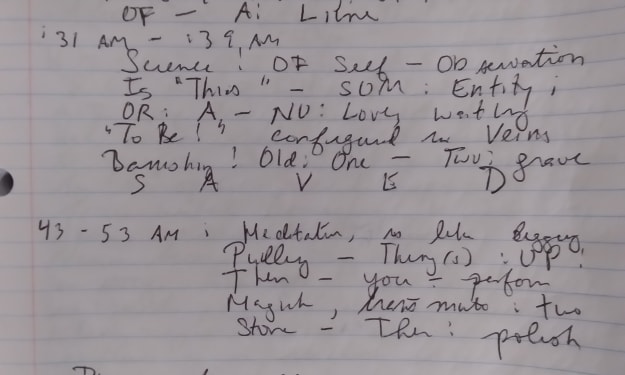 OF - A: Line
:31 AM - :39, AM
Science! OF Self - Observation
Is "This" - SOM: Entity;
OR: A, - NU: Lover, waiting
"To Be!" configured in Veins
Banishing! Old: One - Two: grave
S A V E D
43 - 53 AM: Meditation, is like digging
Pulling - Thing(s): UP!
Then - you - perform
Magick, transmute: two
Stone - Then: polish